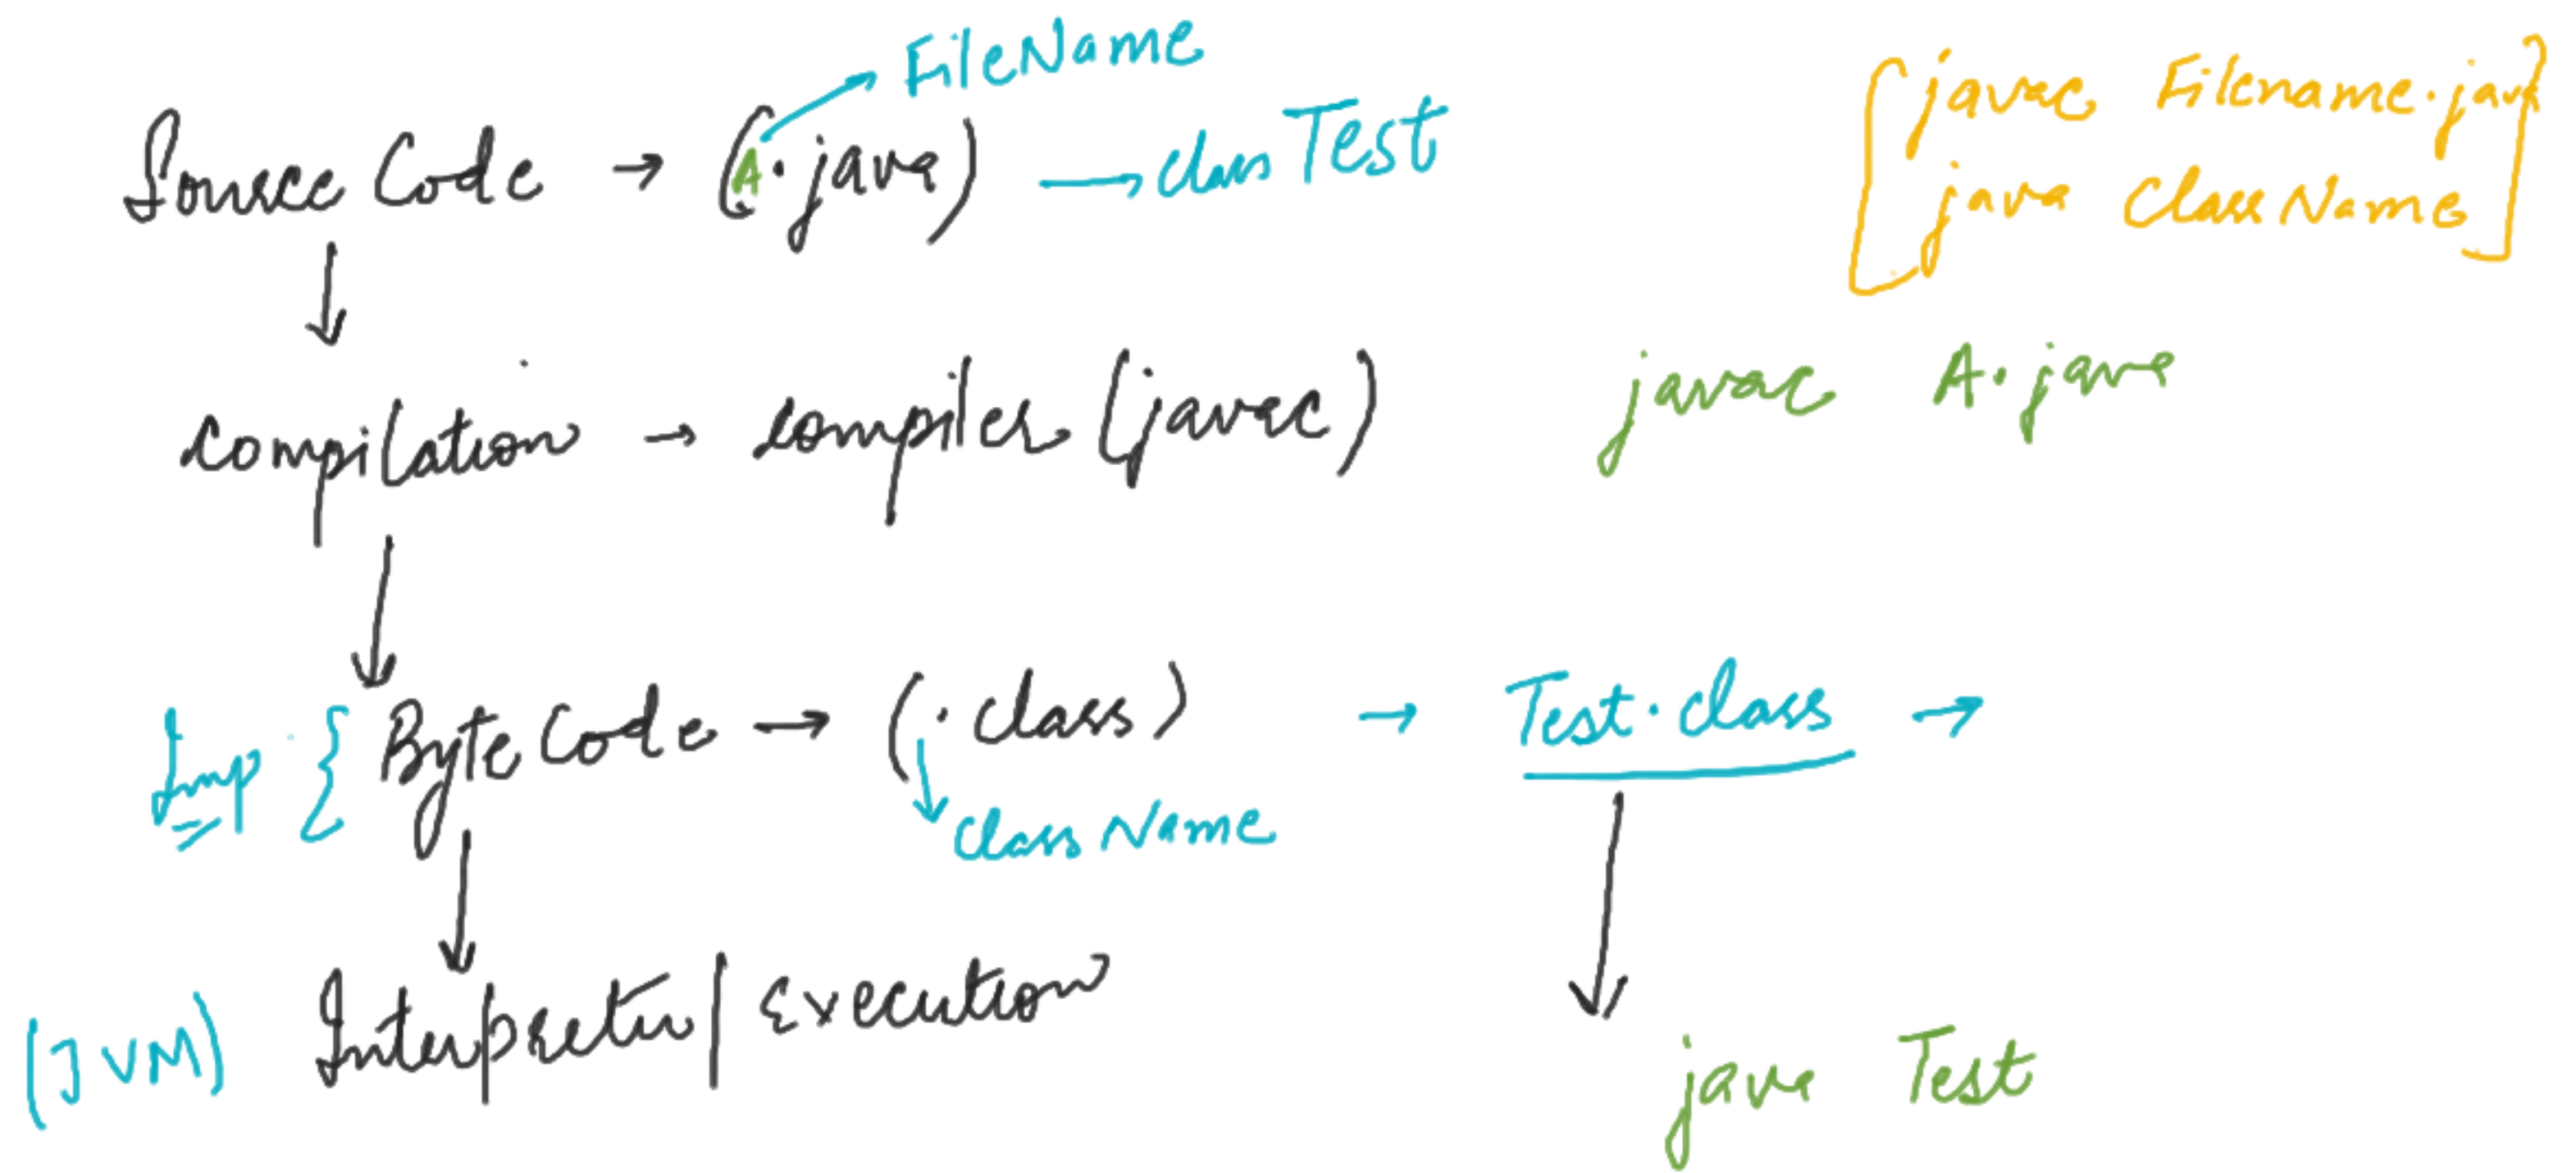 FileName
Source Code → (A.java) → class Test
[javac Filename.java
java ClassName]
compilation → compiler (javac)
javac A.java
Imp { Byte Code → (.class) → Test.class →
class Name
(JVM) Interpreter/Execution
java Test